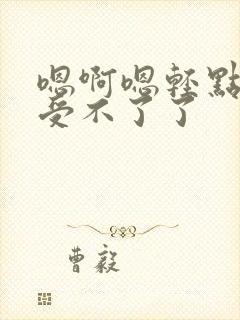 嗯啊嗯輕點
受不了了
曹毅